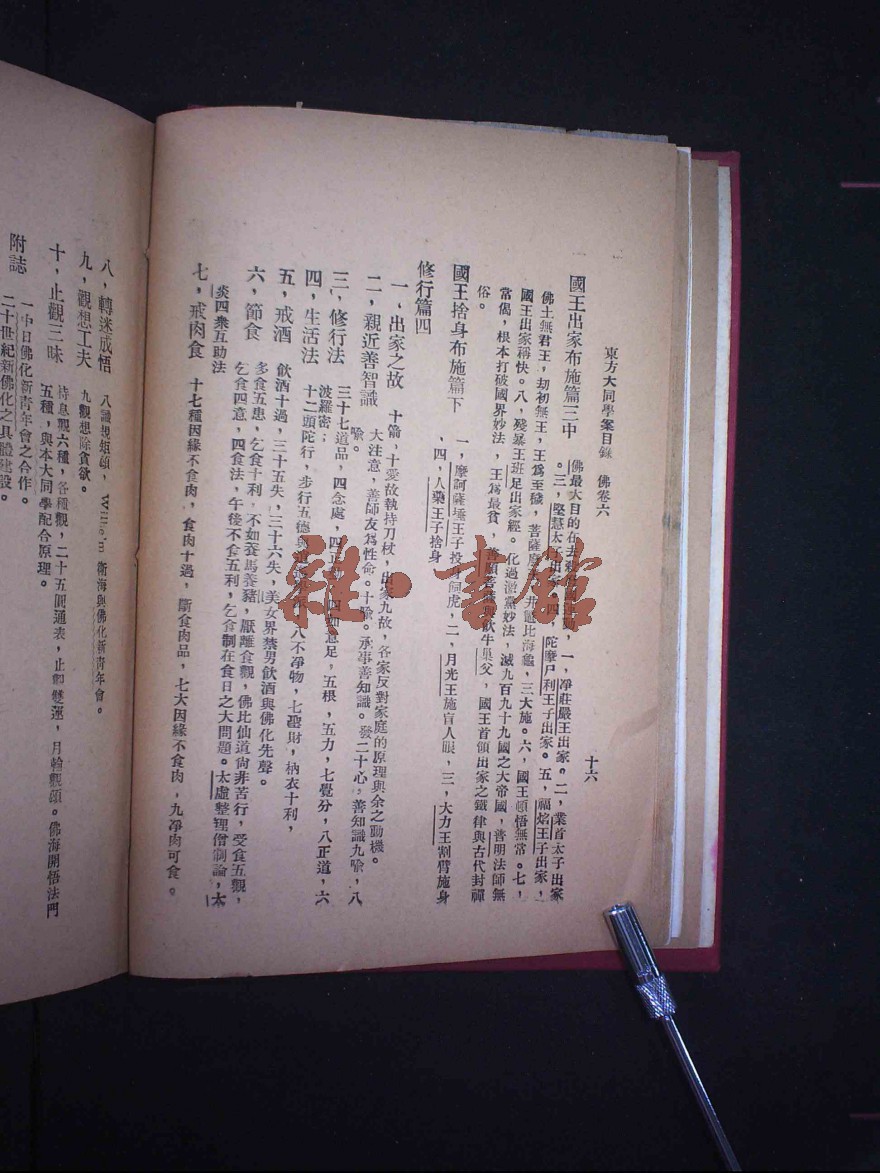 東方大同學案目錄 佛卷六 十六
國王出家布施篇三中 佛最大目的在去 一,淨莊嚴王出家。二,業首太子出家
。三,堅慧太子出家。四,陀摩尸利王子出家。五,福焰王子出家,
佛土無君王,劫初無王,王為至穢,菩薩 井龜比海龜,三大施。六,國王頓悟無常。七,
國王出家稱快。八,殘暴王班足出家經。化過 黨妙法,滅九百九十九國之大帝國,普明法師無
常偈,根本打破國界妙法,王為最貧, 飲牛巢父,國王首領出家之鐵律與古代封禪
俗。
國王捨身布施篇下 一,摩訶薩埵王子投身飼虎,二,月光王施盲人眼,三,大力王割臂施身
,四,人藥王子捨身
修行篇四
一,出家之故 十箭,十愛故執持刀杖,出家九故,各家反對家庭的原理與余之動機。
二,親近善智識 大注意,善師友為性命。十喻。承事善知識。發二十心,善知識九喻,八
喩。
三,修行法 三十七道品,四念處,四正 ,四如意足,五根,五力,七覺分,八正道,六
波羅密;
四,生活法 十二頭陀行,步行五德與 八不淨物,七聖財,衲衣十利,
五,戒酒 飲酒十過,三十五失,三十六失,美女界禁男飲酒與佛化先聲。
六,節食 多食五患,乞食十利,不如養馬養豬,厭離食觀,佛比仙道尙非苦行,受食五觀,
乞食四意,四食法,午後不食五利,乞食制在食日之大問題。太虛整理僧制論,太
炎四衆互助法
七,戒肉食 十七種因緣不食肉,食肉十過,斷食肉品,七大因緣不食肉,九凈肉可食。
八,轉迷成悟 八識規矩頌, 衞海與佛化新青年會。
九,觀想工夫 九觀想除貪欲。
十,止觀三昧 持息觀六種,各種觀,二十五個通表,止觀雙運,月輪觀頌。佛海開悟法門
五種,與本大同學配合原理。
附誌 一中日佛化新青年會之合作。
二十世紀新佛化之具體建設。
雜·書館